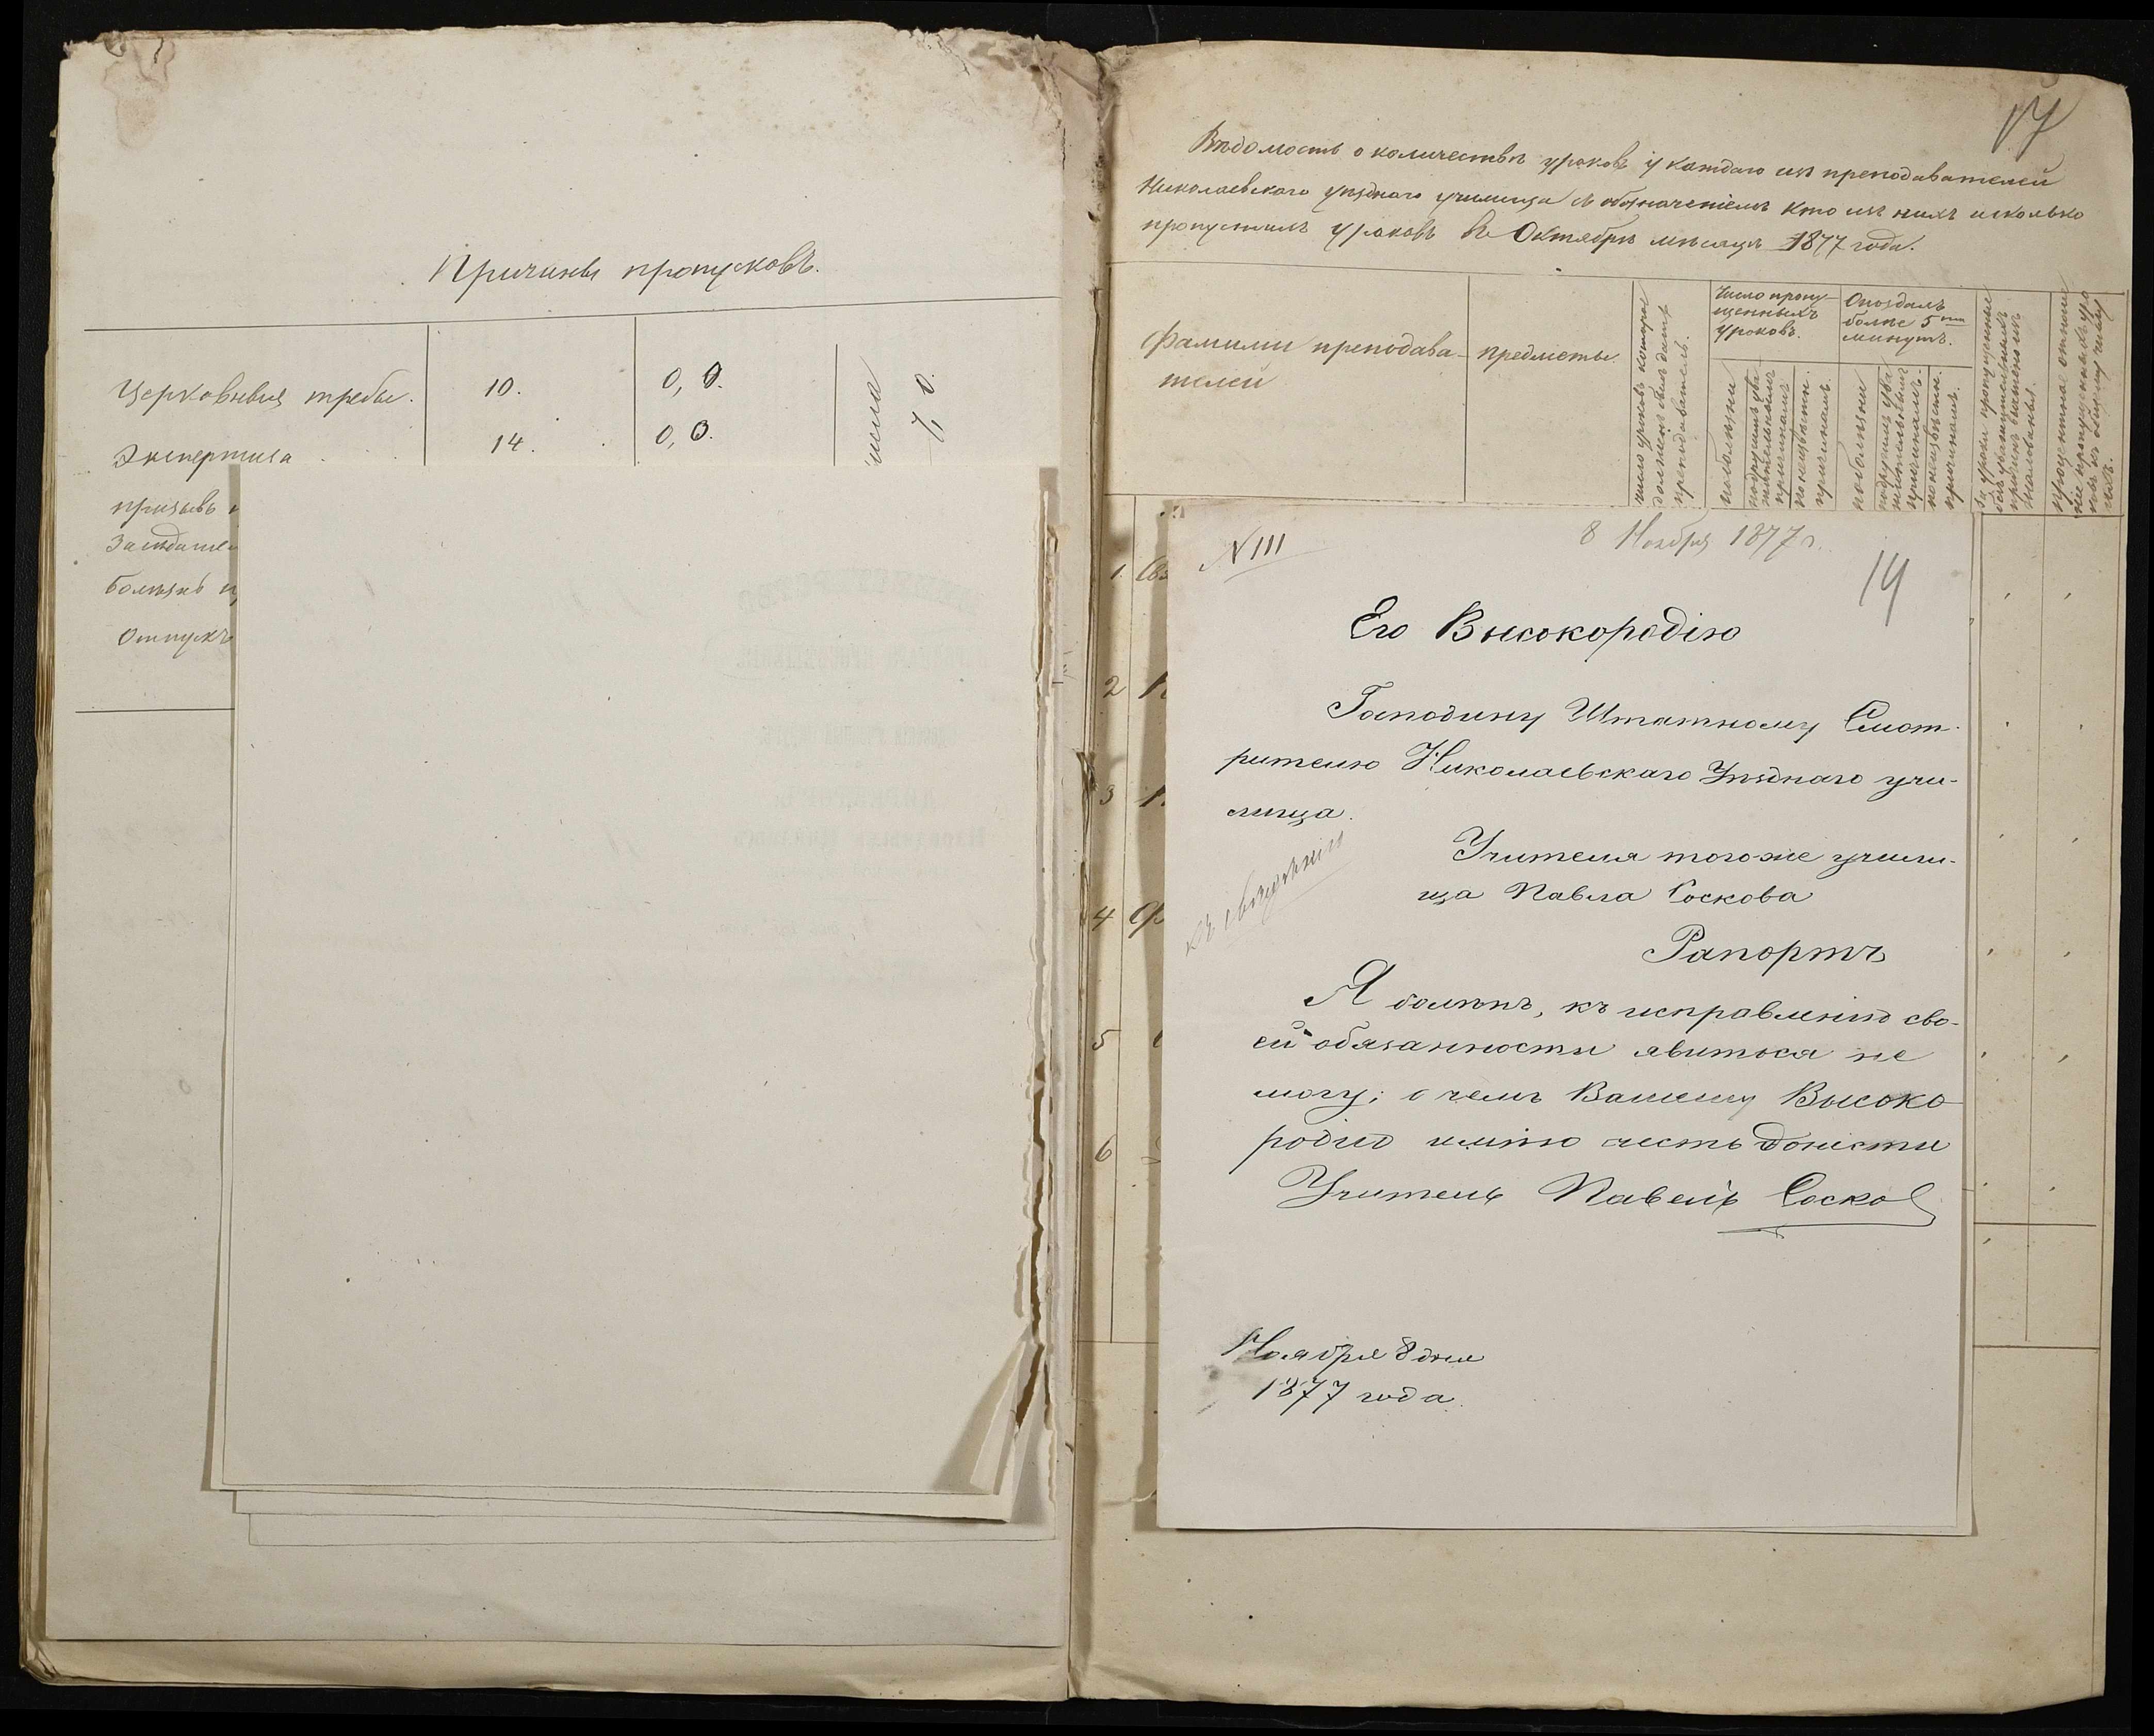 Причины пропусковъ.
Церковныя требы. 10. 0, 0.
Экспертиза 14. 0, 0.
призывъ
Засѣдател
болѣзнь
Отпускъ
17
Вѣдомость о количествѣ уроковъ у каждаго изъ преподавателей
Николаевскаго уѣзднаго училища съ обозначеніемъ кто изъ нихъ и сколько
пропустилъ уроковъ въ Октябрѣ мѣсяцѣ 1877 года.
Фамиліи преподава-
телей
предметы
число уроковъ которое
долженъ былъ дать
преподаватель.
Число пропу-
щенныхъ
уроковъ.
по болѣзни
по другимъ ува
жительнымъ
причинамъ
по неизвѣстн.
причинамъ.
Опоздалъ
болѣе 5ти
минутъ.
по болѣзни
по другимъ ува
жительнымъ
причинамъ.
по неизвѣстн.
причинамъ.
За уроки пропущенные
безъ уважительныхъ
причинъ вычтено изъ
жалованья.
1.
2
3
4
5
6
N 111
8 Ноября 1877 г.
14
Его Высокородію
Господину Штатному Смот-
рителю Николаевскаго Уѣзднаго учи-
лища.
Учителя того-же учили-
ща Павла Соскова
Рапортъ
Я боленъ, къ исправленію сво-
ей обязанности явиться не
могу; о чемъ Вашему Высоко
родію имѣю честь донести
Учитель Павелъ Сосков
къ свѣдѣнію
Ноября 8 дня
1877 года.